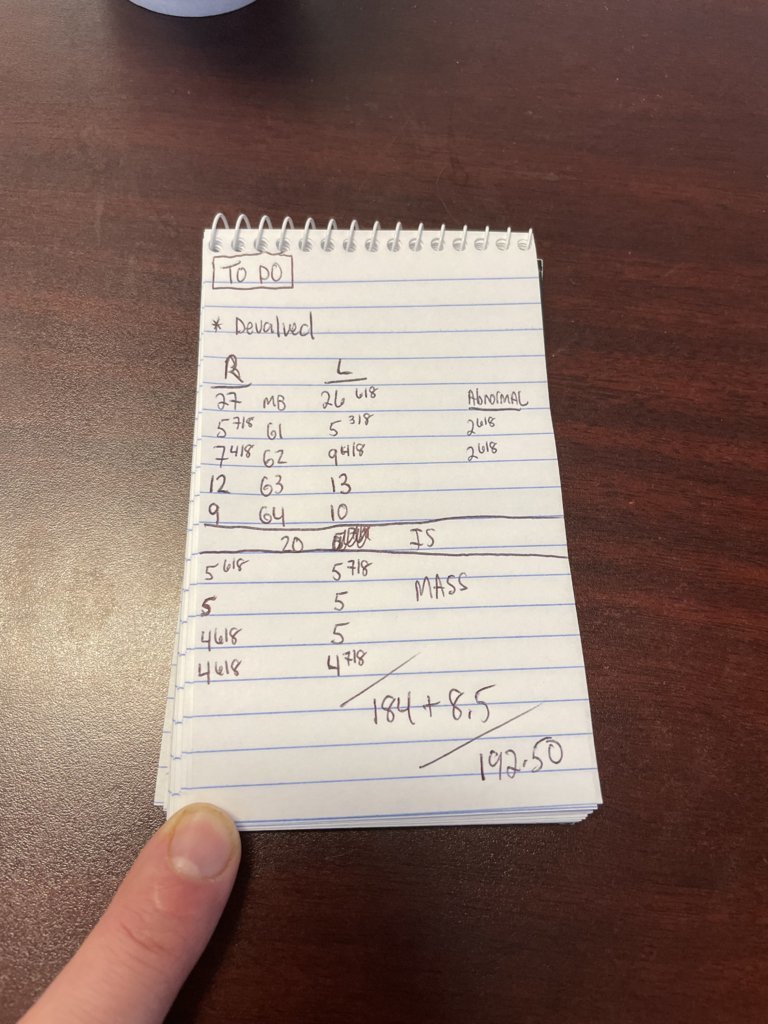 TO DO
* Devalued
R L
27 MB 26 6/8 Abnormal
5 7/8 G1 5 3/8 2 6/8
7 4/8 G2 9 4/8 2 6/8
12 G3 13
9 G4 10
20 IS
5 6/8 5 7/8
5 5 MASS
4 6/8 5
4 6/8 4 7/8
184 + 8.5
192.50